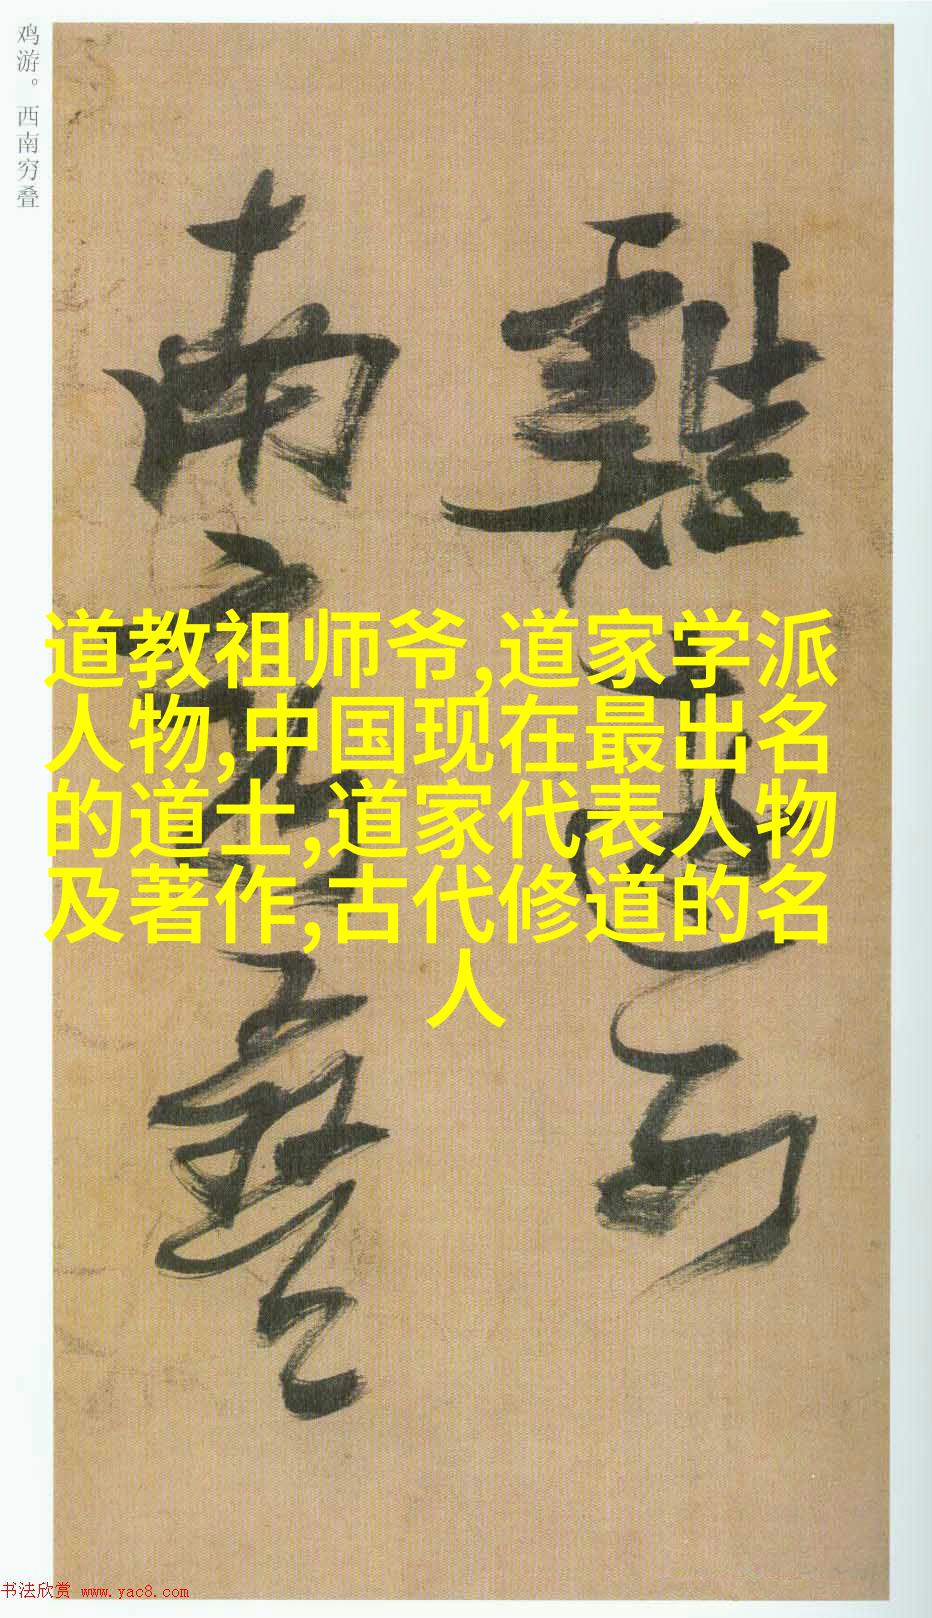 鸡游。西南穷叠
雞遊西
南窮疊
道教祖师爷,道家学派
人物,中国现在最出名
的道士,道家代表人物
及著作,古代修道的名
人
书法欣赏 www.yac8.com